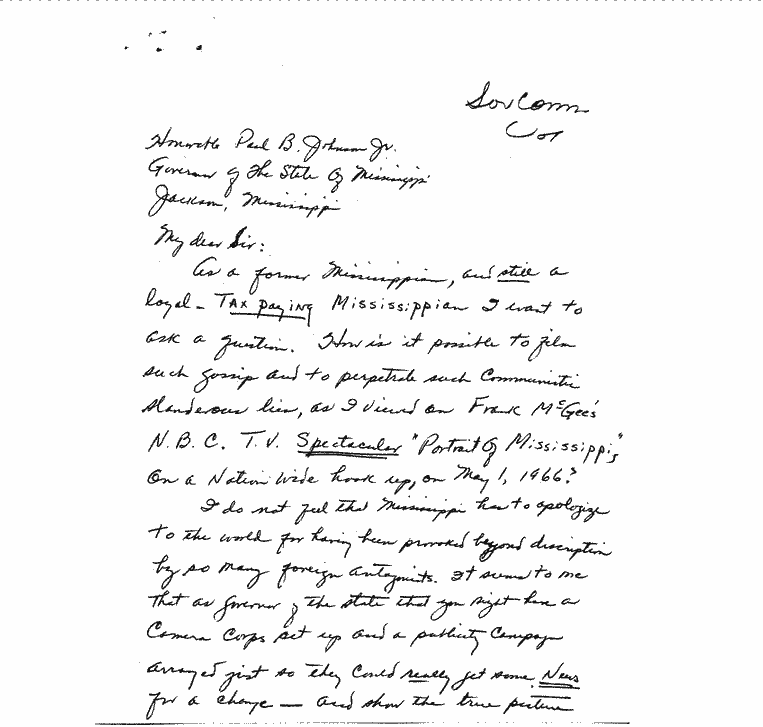 Sov Comm
Honorable Paul B. Johnson Jr.
Governor of The State Of Mississippi
Jackson, Mississippi
My dear Sir:
As a former Mississippian, and still a
loyal - Tax paying Mississippian I want to
ask a question. How is it possible to film
such gossip and to perpetrate such Communistic
slanderous lies, as I viewed on Frank McGee's
N.B.C. T.V. Spectacular "Portrait Of Mississippi",
On a Nation Wide hook up, on May 1, 1966?
I do not feel that Mississippi has to apologize
to the world for having been provoked beyond discription
by so many foreign antagonists. It seems to me
that as governor of the state that you might have a
Camera Corps set up and a publicity Campaign
arranged just so they could really get some News
for a change — and show the true picture